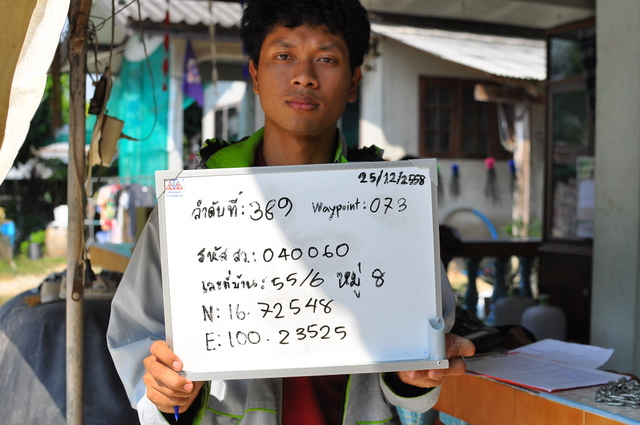 25/12/2558
ลำดับที่: 389 Waypoint: 073
รหัส สว.: 040060
เลขที่บ้าน: 55/6 หมู่ 8
N: 16.72548
E: 100.23525